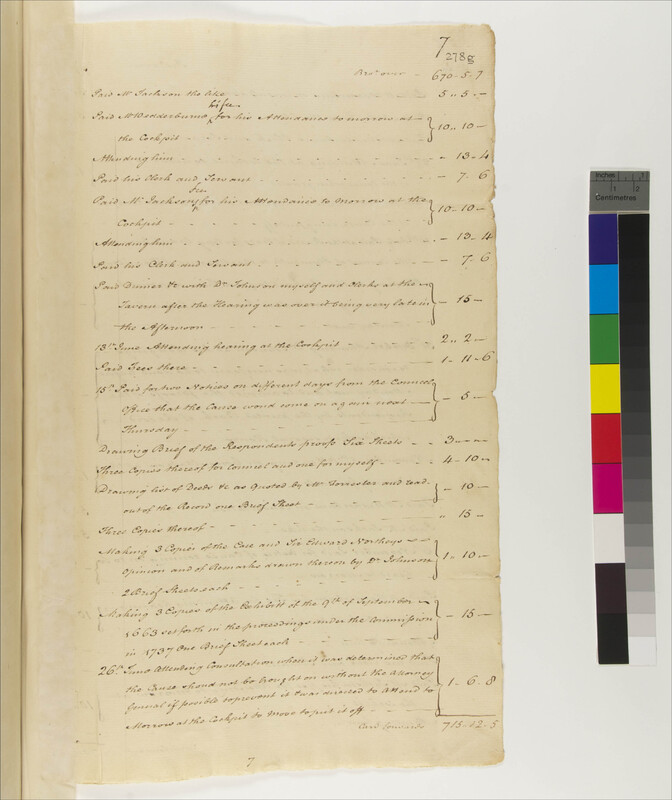 7
278g
Bro.t over - 670-5-7
Paid Mr Jackson the like - 5,, 5,, -
Paid Mr Wedderburne his fee for his Attendance to morrow at the Cockpit - 10,, 10 -
Attending him - 13 - 4
Paid his Clerk and Servant - 7. 6
Paid Mr Jackson fee for his Attendance to Morrow at the
Cockpit - 10 - 10 -
Attending him - 13 - 4
Paid his Clerk and Servant - 7. 6
Paid Dinner &c with Dr Johnson myself and Clerks at the
Tavern after the Hearing was over it being very late in - 15 -
the Afternoon
13th June Attending hearing at the Cockpit - 2,, 2 -
Paid Fees there - 1 - 11 - 6
15th Paid for two Notices on different days from the Council
Office that the Cause would come on again next - 5 -
Thursday
Drawing Brief of the Respondents proofs Six Sheets - 3 - - -
Three Copies thereof for Counsel and one for myself - 4 - 10 -
Drawing list of Deeds &c as Quoted by Mr Forrester and read
out of the Record one Brief Sheet - 10 -
Three Copies thereof - 15 -
Making 3 Copies of the Case and Sir Edward Northeys
Opinion and of Remarks drawn thereon by Dr Johnson 1,, 10 -
2 Brief Sheets each
Making 3 Copies of the Exhibitt of the 9th of September
1663 set forth in the proceedings under the Commission - 15 -
in 1737 One Brief Sheet each
26th June Attending Consultation when it was determined that
the Cause should not be brought on without the Attorney
General if possible to prevent it & was directed to Attend to 1 - 6 - 8
Morrow at the Cockpit to move to put it off
Card forwards 713-12-5
7
inches 1 2
Centimetres